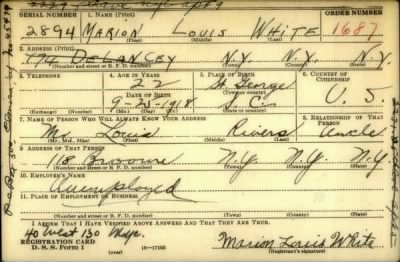 SERIAL NUMBER 1. NAME (Print) ORDER NUMBER
2894 MARION LOUIS WHITE 1687
(First) (Middle) (Last)
2. ADDRESS (Print)
174 DELANCEY N.Y. N.Y. N.Y.
(Number and street or R. F. D. number) (Town) (County) (State)
3. TELEPHONE 4. AGE IN YEARS 5. PLACE OF BIRTH 6. COUNTRY OF CITIZENSHIP
22 St. George
DATE OF BIRTH (Town or county)
9-25-1918 S.C. U. S.
(Exchange) (Number) (Mo.) (Day) (Yr.) (State or country)
7. NAME OF PERSON WHO WILL ALWAYS KNOW YOUR ADDRESS 8. RELATIONSHIP OF THAT PERSON
Mr. Louis Rivers Uncle
(Mr., Mrs., Miss) (First) (Middle) (Last)
9. ADDRESS OF THAT PERSON
118 Broome N.Y. N.Y. N.Y.
(Number and street or R. F. D. number) (Town) (County) (State)
10. EMPLOYER'S NAME
Unemployed
11. PLACE OF EMPLOYMENT OR BUSINESS
(Number and street or R. F. D. number) (Town) (County) (State)
I AFFIRM THAT I HAVE VERIFIED ABOVE ANSWERS AND THAT THEY ARE TRUE.
40 West 130 NYC.
REGISTRATION CARD
D. S. S. Form 1 16-17105 Marion Louis White
(Registrant's signature)